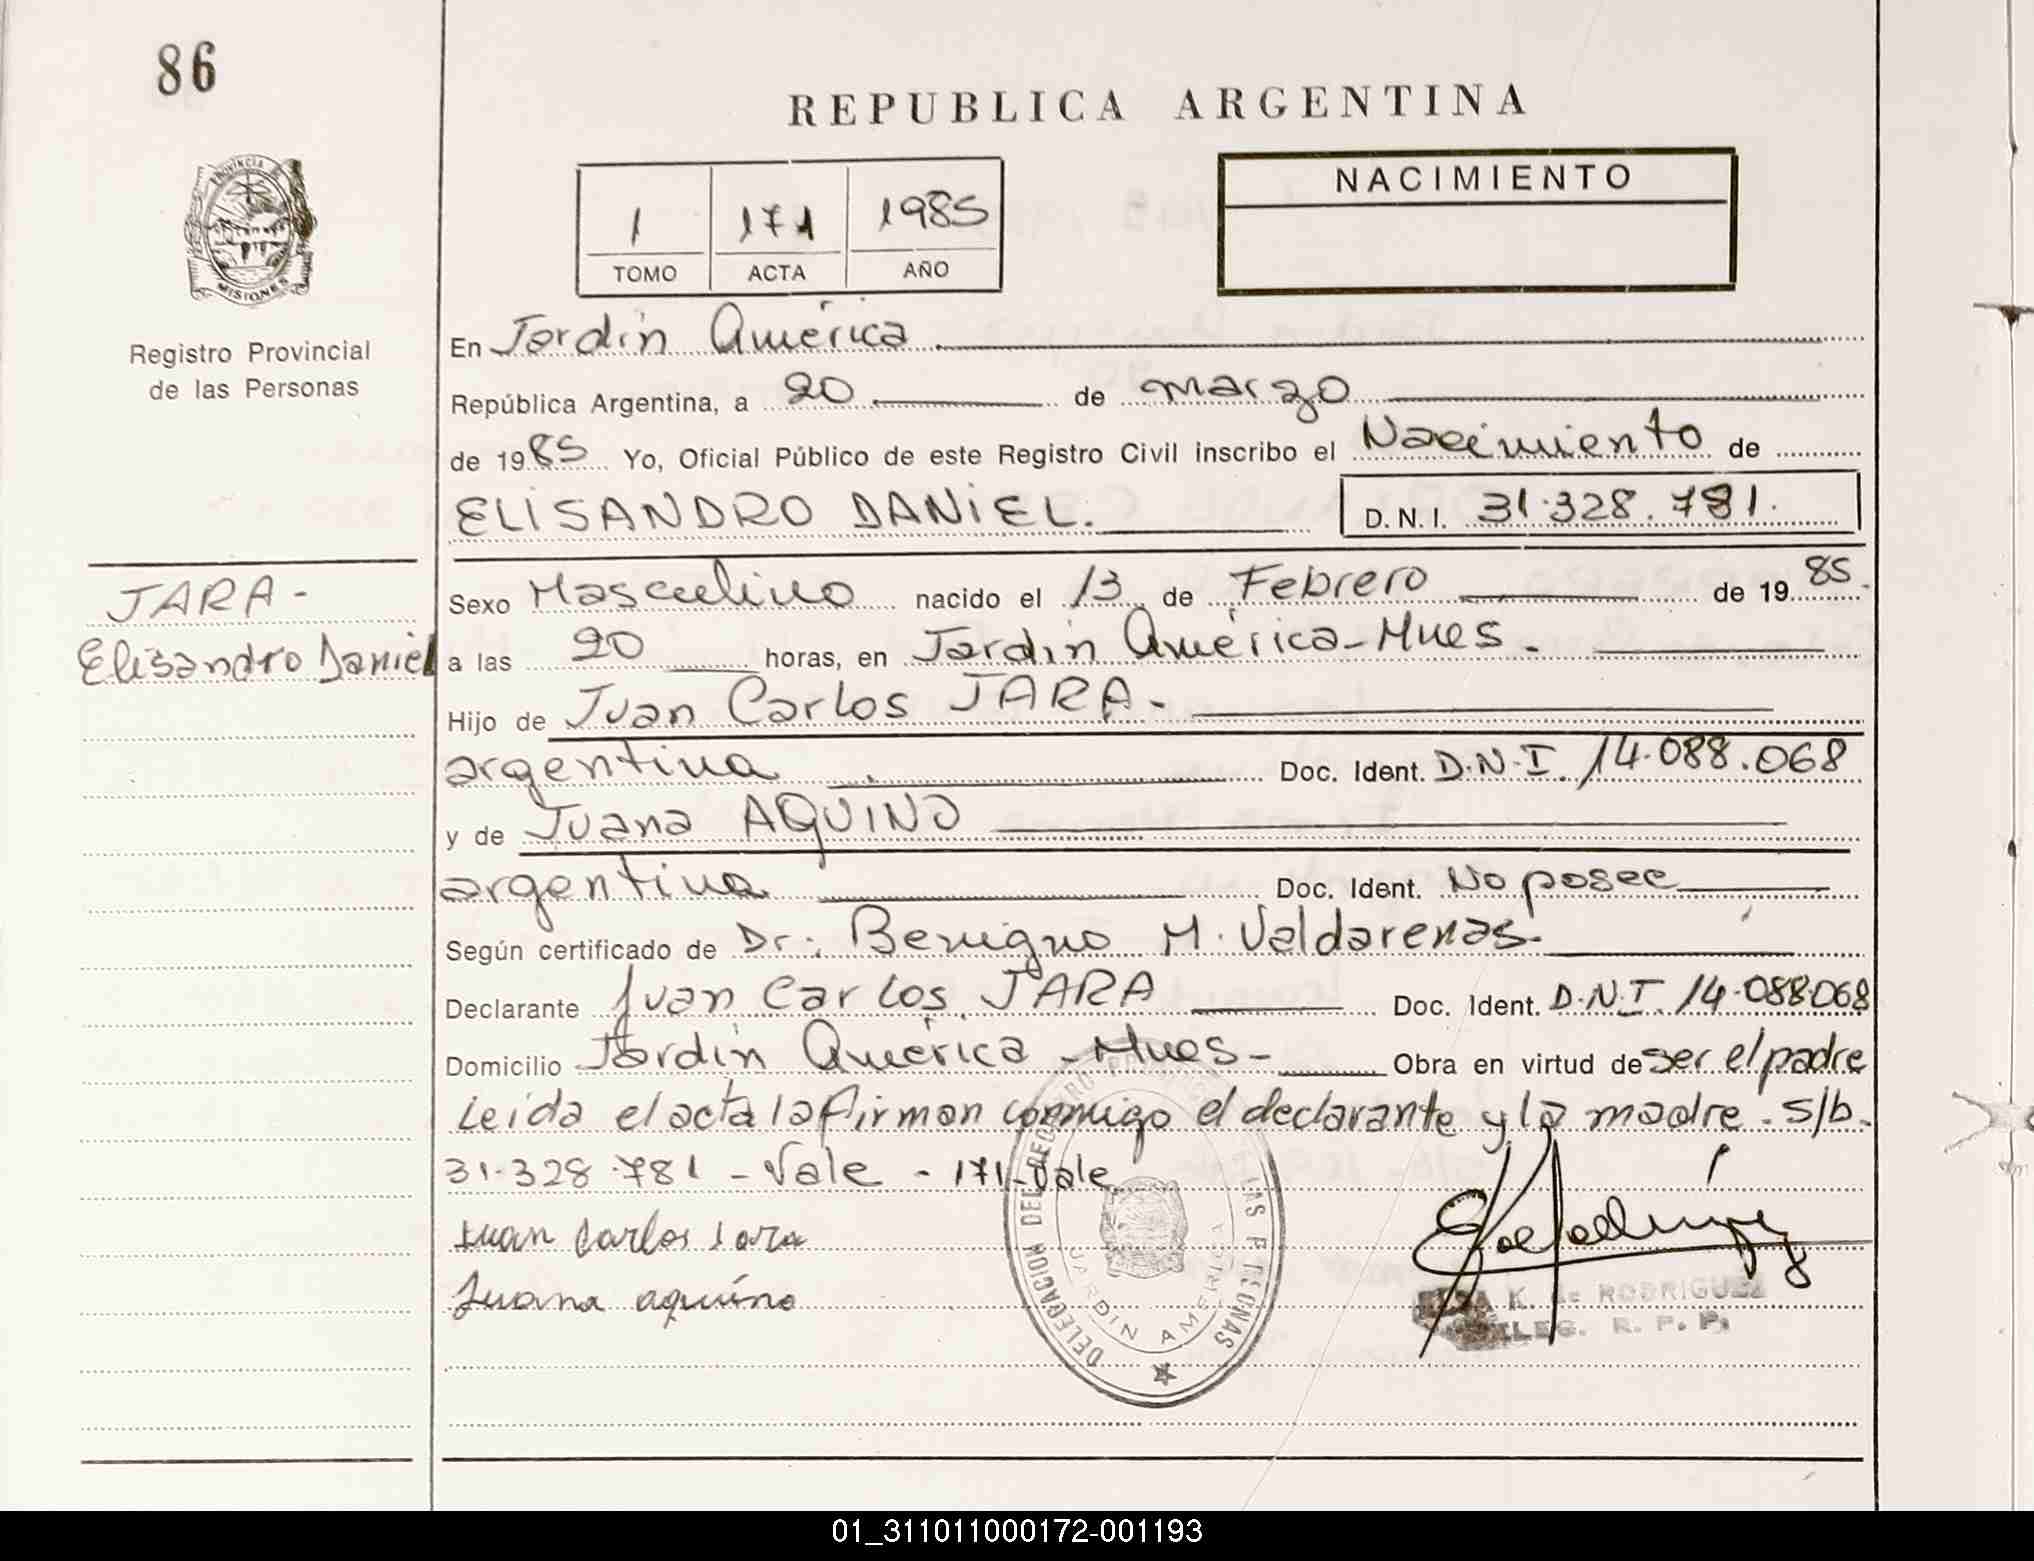 86
REPUBLICA ARGENTINA
PROVINCIA
MISIONES
Registro Provincial
de las Personas
1 171 1985
TOMO ACTA AÑO
NACIMIENTO
En Jardín América
República Argentina, a 20 de marzo
de 1985 Yo, Oficial Público de este Registro Civil inscribo el Nacimiento de
ELISANDRO DANIEL. D.N.I. 31.328.781.
JARA -
Elisandro Daniel
Sexo Masculino nacido el 13 de Febrero de 1985.
a las 20 horas, en Jardín América - Mnes.
Hijo de Juan Carlos JARA -
argentina Doc. Ident. D.N.I. 14.088.068
y de Juana AQUINO
argentina Doc. Ident. No posee
Según certificado de Dr: Benigno M. Valdarenas.
Declarante Juan Carlos JARA Doc. Ident. D.N.I. 14.088.068
Domicilio Jardín América - Mnes - Obra en virtud de ser el padre
Leída el acta la firman conmigo el declarante y la madre. s/b.
31.328.781 - Vale - 171 - Vale
Juan Carlos Jara
Juana aquino
DELEGACION DEL REGISTRO PROVINCIAL DE LAS PERSONAS
JARDIN AMERICA
K. de RODRIGUEZ
DELEG. R. P. P.
01_311011000172-001193